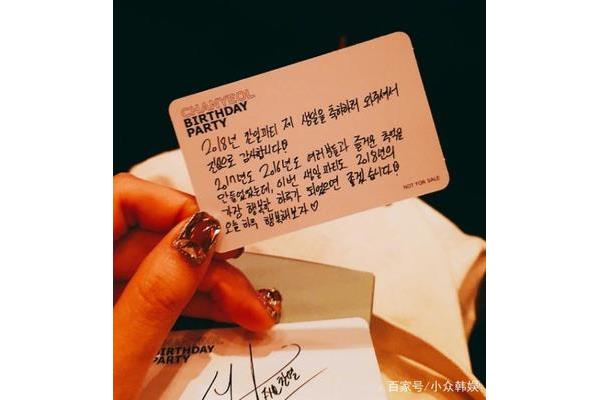 CHANYEOL
BIRTHDAY
PARTY
2018년 찬열파티 제 생일을 축하하러 와주셔서
진심으로 감사합니다
2017년도 2016년도 여러분들과 즐거운 추억을
만들었었는데, 이번 생일파티도 2018년의
가장 행복한 하루가 되었으면 좋겠습니다
오늘 하루 행복해보자♡
NOT FOR SALE
BIRTHDAY
PARTY
찬열
百家号/小众韩娱